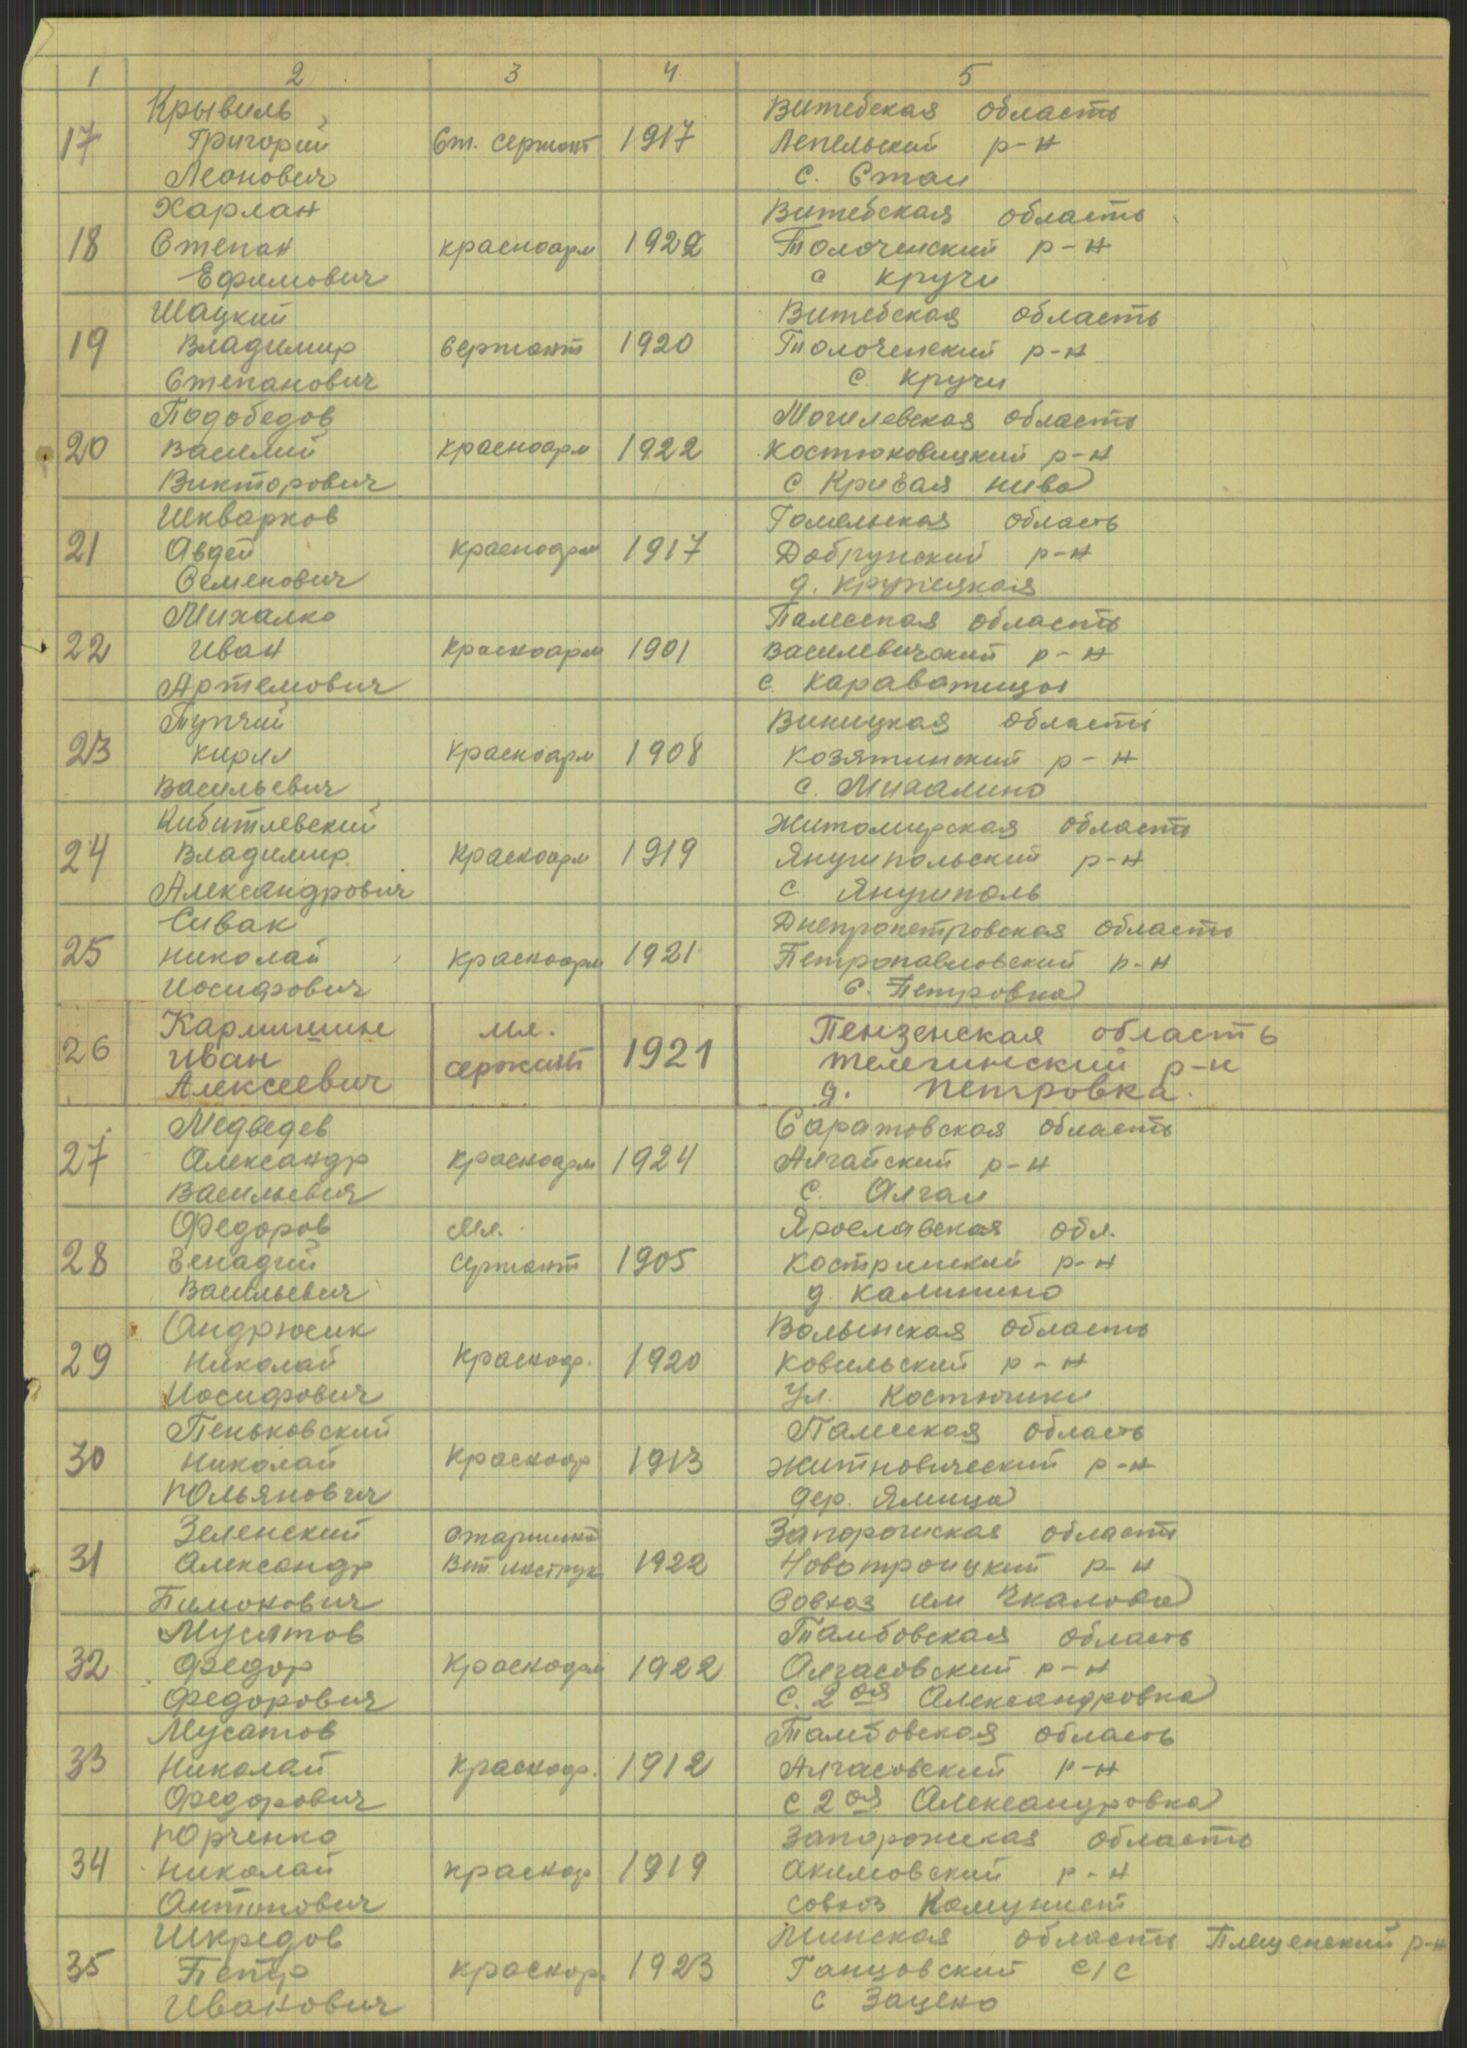 1 2 3 4 5
Крывиль Витебская область
17 Григорий Ст. Сержант 1917 Лепельский р-н
Леонович с. Стаи
Харлан Витебская область
18 Степан красноарм 1922 Толоченский р-н
Ефимович с кручи
Шацкий Витебская область
19 Владимир Сержант 1920 Толоченский р-н
Степанович с. кручи
Подобедов Могилевская область
20 Василий красноарм 1922 Костюковицкий р-н
Викторович с Кривая нива
Шкварков Гомельская область
21 Авдей красноарм 1917 Добрушский р-н
Семенович д. кружецкая
Михалко Палесская область
22 Иван красноарм 1901 Василевичский р-н
Артемович с. Караватицы
Тупчий Виницкая область
23 Кирил красноарм 1908 Козятинский р-н
Васильевич с. Михалино
Кибитлевский Житомирская область
24 Владимир. красноарм 1919 Янушпольский р-н
Александрович с. Янушполь
Сивак Днепропетровская область
25 Николай красноарм 1921 Петропавловский р-н
Иосифович с. Петровка
Кармишин мл. Пензенская область
26 Иван сержант 1921 телегинский р-н
Алексеевич д. петровка.
Медведев Саратовская область
27 Александр красноарм 1924 Алгайский р-н
Васильевич с. Алгаи
Федоров Мл. Ярославская обл.
28 Генадий Сержант 1905 Костринский р-н
Васильевич д. калинино
Андрюсик Волынская область
29 Николай Красноар. 1920 Ковильский р-н
Иосифович Ул. Костючики
Пеньковский Палеская область
30 Николай Красноар 1913 Житковический р-н
Юльянович дер. Ямица
Зеленский старшина Запорожская область
31 Александр Вет инструк 1922 Новотроицкий р-н
Пимонович Совхоз им Чкалова
Мусатов Тамбовская область
32 Федор Красноарм 1922 Алгасовский р-н
Федорович с. 2ая Александровка
Мусатов Тамбовская область
33 Николай Красноар. 1912 Алгасовский р-н
Федорович с 2ая Александровка
Юрченко Запорожская область
34 Николай красноар 1919 Акимовский р-н
Антонович Совхоз Комунист
Шкредов Минская область Плещенский р-н
35 Петр красноар. 1923 Ганцовский с/с
Иванович с Зацено